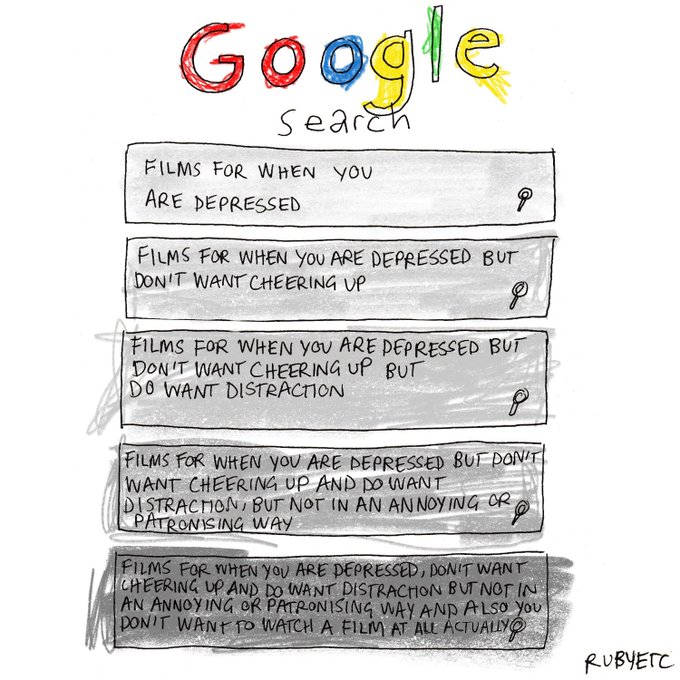 Google
search
FILMS FOR WHEN YOU
ARE DEPRESSED
FILMS FOR WHEN YOU ARE DEPRESSED BUT
DON'T WANT CHEERING UP
FILMS FOR WHEN YOU ARE DEPRESSED BUT
DON'T WANT CHEERING UP BUT
DO WANT DISTRACTION
FILMS FOR WHEN YOU ARE DEPRESSED BUT DON'T
WANT CHEERING UP AND DO WANT
DISTRACTION, BUT NOT IN AN ANNOYING OR
PATRONISING WAY
FILMS FOR WHEN YOU ARE DEPRESSED, DON'T WANT
CHEERING UP AND DO WANT DISTRACTION BUT NOT IN
AN ANNOYING OR PATRONISING WAY AND ALSO YOU
DON'T WANT TO WATCH A FILM AT ALL ACTUALLY
RUBYETC